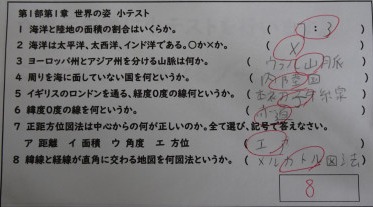 第1部第1章 世界の姿 小テスト
1 海洋と陸地の面積の割合はいくらか。 ( 7:3 )
2 海洋は太平洋、太西洋、インド洋である。○か×か。 ( × )
3 ヨーロッパ州とアジア州を分ける山脈は何か。 ( ウラル山脈 )
4 周りを海に面していない国を何というか。 ( 内陸国 )
5 イギリスのロンドンを通る、経度0度の線何というか。 ( 本初子午線 )
6 緯度0度の線を何というか。 ( 赤道 )
7 正距方位図法は中心からの何が正しいのか。全て選び、記号で答えなさい。
ア 距離 イ 面積 ウ 角度 エ 方位 ( エ ア )
8 緯線と経線が直角に交わる地図を何図法というか。 ( メルカトル図法 )
8